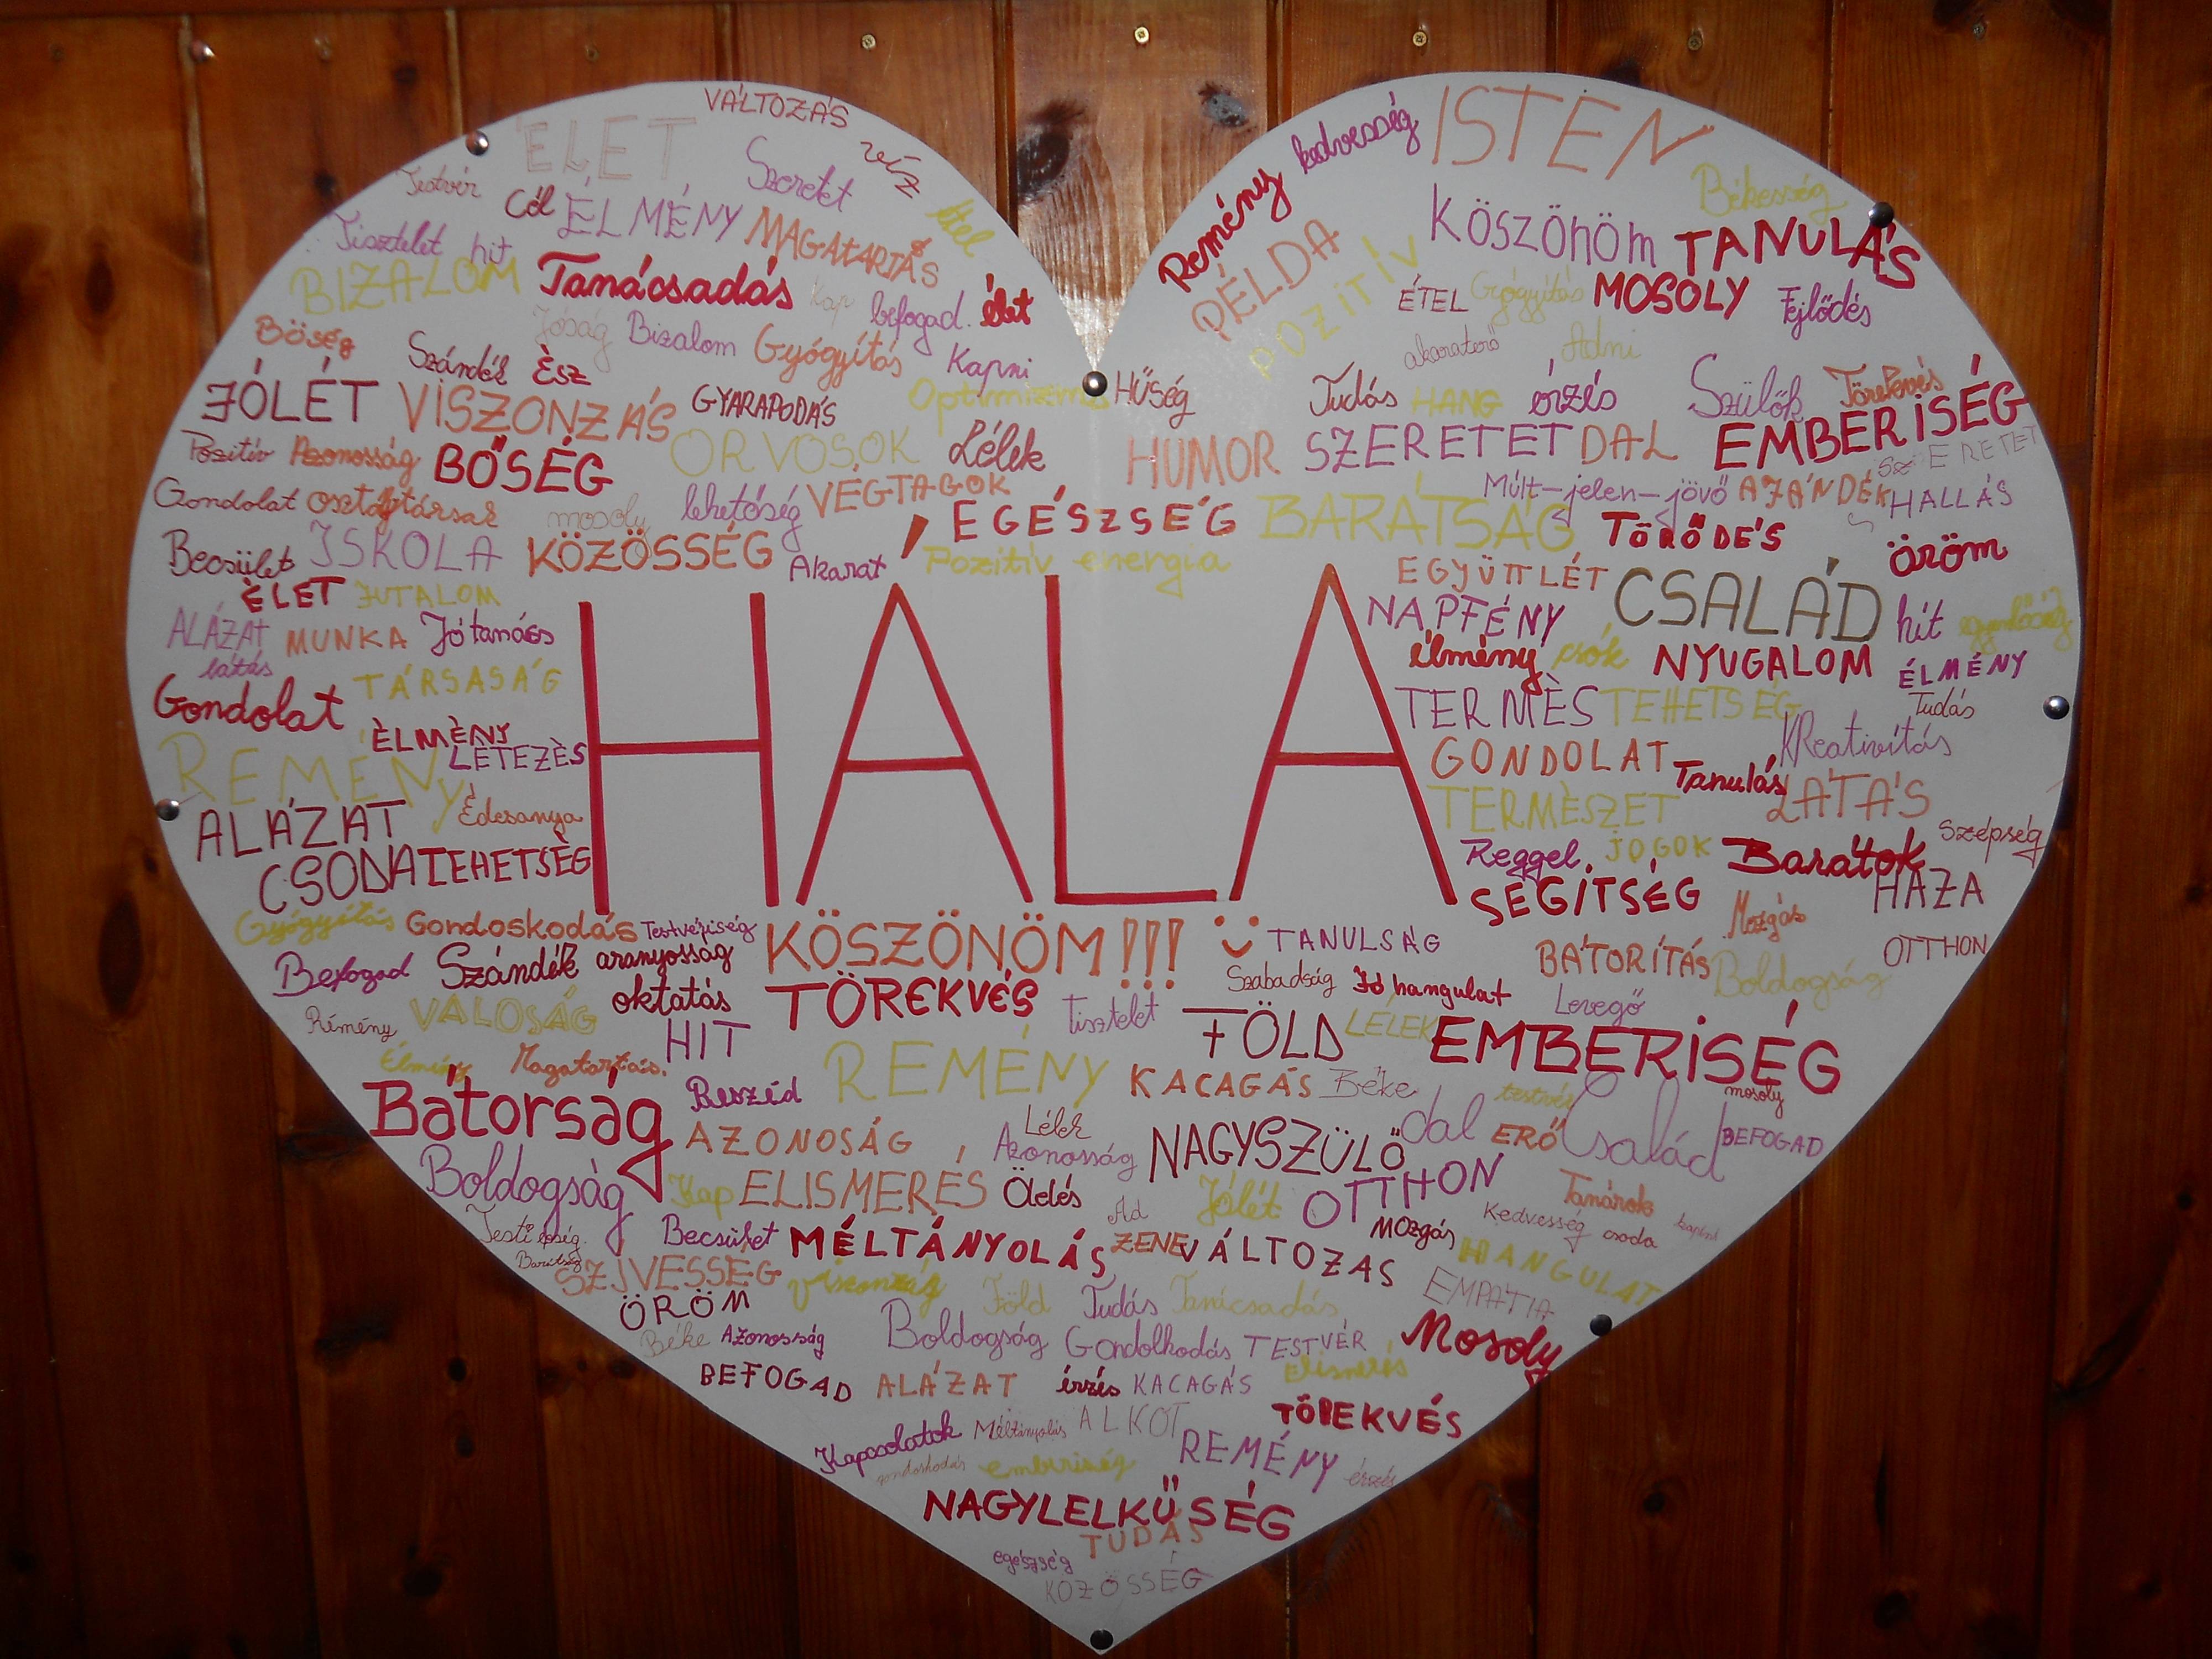 VÁLTOZÁS
ÉLET
Szeretet
víz
Testvér
Cél
ÉLMÉNY
MAGATARTÁS
Étel
Tisztelet
hit
BIZALOM
Tanácsadás
Kap
befogad.
élet
Bőség
Jóság
Bizalom
Gyógyítás
Kapni
Szándék
Ész
JÓLÉT
VISZONZÁS
GYARAPODÁS
Optimizmus
Pozitív
Azonosság
BŐSÉG
ORVOSOK
Lélek
Gondolat
osztálytársak
mosoly
lehetőség
VÉGTAGOK
Becsület
ISKOLA
KÖZÖSSÉG
Akarat
EGÉSZSÉG
Pozitív energia
ÉLET
JUTALOM
ALÁZAT
MUNKA
Jó tanács
látás
Gondolat
TÁRSASÁG
ÈLMÈNY
LÉTEZÈS
REMÉNY
ALÁZAT
Édesanya
CSODA
TEHETSÈG
kedvesség
ISTEN
Remény
Békesség
PÉLDA
Köszönöm
TANULÁS
POZITÍV
ÉTEL
Gyógyítás
MOSOLY
Fejlődés
akaraterő
Adni
HŰSÉG
Tudás
HANG
érzés
Szülők
Törekvés
HUMOR
SZERETET
DAL
EMBERISÉG
SZERETET
Múlt-jelen-jövő
AJÁNDÉK
HALLÁS
BARÁTSÁG
TÖRŐDÉS
öröm
EGYÜTTLÉT
CSALÁD
NAPFÉNY
hit
élmény
csók
NYUGALOM
ÉLMÉNY
TERMÈS
TEHETSÉG
Tudás
KReativitás
GONDOLAT
Tanulás
LÁTÁS
TERMÈSZET
Szépség
Reggel
JOGOK
Barátok
HAZA
SEGÍTSÉG
Mozgás
HÁLA
Gyógyítás
Gondoskodás
Testvériség
KÖSZÖNÖM!!!
TANULSÁG
BÁTORÍTÁS
OTTHON
Befogad
Szándék
aranyosság
Szabadság
Jó hangulat
Boldogság
oktatás
TÖREKVÉS
Tisztelet
Levegő
Rémény
VALÓSÁG
HIT
FÖLD
LÉLEK
EMBERISÉG
Élmény
Magatartás.
REMÉNY
KACAGÁS
Béke
testvér
mosoly
Bátorság
Beszéd
AZONOSÁG
Lélek
Azonosság
NAGYSZÜLŐ
dal
ERŐ
Család
BEFOGAD
Boldogság
Kap
ELISMERÉS
Ölelés
Ad
Jólét
OTTHON
Tanárok
Testi épség.
Becsület
MÉLTÁNYOLÁS
ZENE
VÁLTOZAS
MOzgás
Kedvesség
csoda
Barátság
SZÍVESSÉG
Viszonzás
HANGULAT
ÖRÖM
Föld
Tudás
Tanácsadás
EMPATIA
Béke
Azonosság
Boldogság
Gondolkodás
TESTVÉR
Mosoly
BEFOGAD
ALÁZAT
érzés
KACAGÁS
Elismerés
Kapcsolatok
Méltányolás
ALKOT
TÖREKVÉS
gondoskodás
emberiség
REMÉNY
érzés
NAGYLELKŰSÉG
TUDÁS
egészség
KÖZÖSSÉG